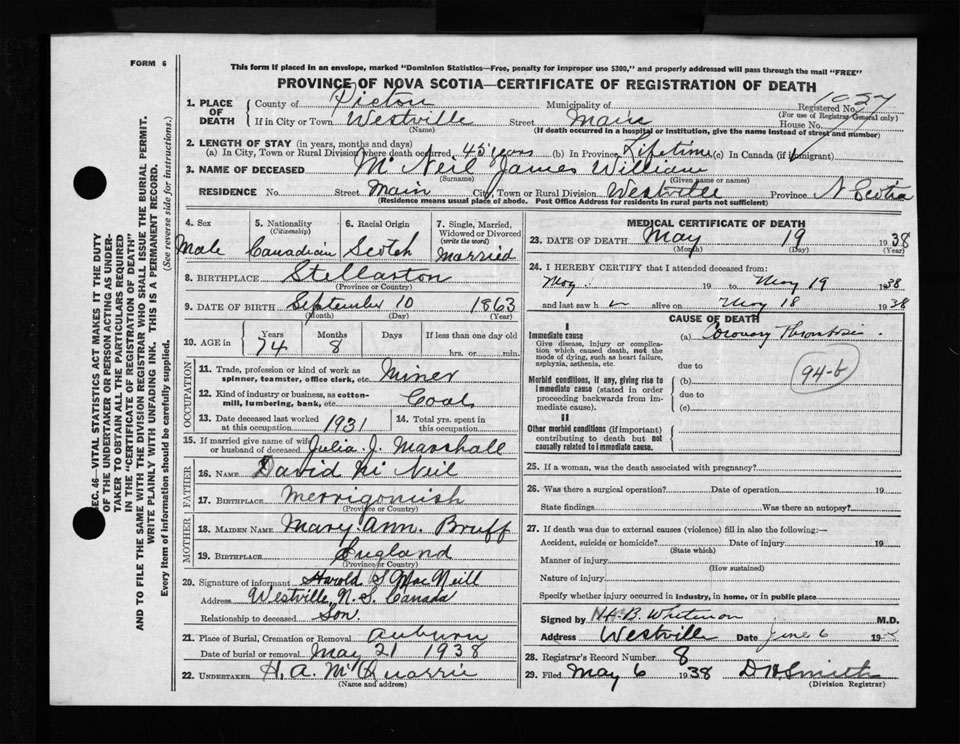 FORM 6
This form if placed in an envelope, marked "Dominion Statistics—Free, penalty for improper use $300," and properly addressed will pass through the mail "FREE"
PROVINCE OF NOVA SCOTIA—CERTIFICATE OF REGISTRATION OF DEATH
SEC. 46—VITAL STATISTICS ACT MAKES IT THE DUTY
OF THE UNDERTAKER OR PERSON ACTING AS UNDER-
TAKER TO OBTAIN ALL THE PARTICULARS REQUIRED
IN THE "CERTIFICATE OF REGISTRATION OF DEATH"
AND TO FILE THE SAME WITH THE DIVISION REGISTRAR WHO SHALL ISSUE THE BURIAL PERMIT.
WRITE PLAINLY WITH UNFADING INK. THIS IS A PERMANENT RECORD.
Every item of information should be carefully supplied. (See reverse side for instructions.)
1. PLACE OF DEATH
County of Pictou Municipality of Registered No.
(For use of Registrar General only)
If in City or Town Westville Street Main House No.
(Name) (If death occurred in a hospital or institution, give the name instead of street and number)
2. LENGTH OF STAY (in years, months and days)
(a) In City, Town or Rural Division where death occurred 45 years (b) In Province Lifetime (c) In Canada (if immigrant)
3. NAME OF DECEASED Mc Neil James William
(Surname) (Given name or names)
RESIDENCE No. Street Main City, Town or Rural Division Westville Province N Scotia
(Residence means usual place of abode. Post Office Address for residents in rural parts not sufficient)
4. Sex Male
5. Nationality (Citizenship) Canadian
6. Racial Origin Scotch
7. Single, Married, Widowed or Divorced (write the word) Married
8. BIRTHPLACE Stellarton
(Province or Country)
9. DATE OF BIRTH September 10 1863
(Month) (Day) (Year)
10. AGE in Years 74 Months 8 Days If less than one day old hrs. or min.
OCCUPATION
11. Trade, profession or kind of work as spinner, teamster, office clerk, etc. Miner
12. Kind of industry or business, as cotton-mill, lumbering, bank, etc. Coal
13. Date deceased last worked at this occupation 1931
14. Total yrs. spent in this occupation
15. If married give name of wife or husband of deceased Julia J. Marshall
FATHER
16. NAME David Mc Neil
17. BIRTHPLACE Merrigomish
(Province or Country)
MOTHER
18. MAIDEN NAME Mary Ann. Bruff
19. BIRTHPLACE England
(Province or Country)
20. Signature of informant Harold S MacNeill
Address Westville, N.S. Canada
Relationship to deceased Son.
21. Place of Burial, Cremation or Removal Auburn
Date of burial or removal May 21 1938
22. UNDERTAKER H. A. McQuarrie
(Name and address)
MEDICAL CERTIFICATE OF DEATH
23. DATE OF DEATH May 19 1938
(Month) (Day) (Year)
24. I HEREBY CERTIFY that I attended deceased from:
May 19 to May 19 1938
and last saw h alive on May 18 1938
CAUSE OF DEATH
I
Immediate cause
Give disease, injury or complication which caused death, not the mode of dying, such as heart failure, asphyxia, asthenia, etc.
(a) Coronary Thrombosis
due to
94-b
Morbid conditions, if any, giving rise to immediate cause (stated in order proceeding backwards from immediate cause).
(b)
due to
(c)
II
Other morbid conditions (if important) contributing to death but not causally related to immediate cause.
25. If a woman, was the death associated with pregnancy?
26. Was there a surgical operation? Date of operation 19
State findings Was there an autopsy?
27. If death was due to external causes (violence) fill in also the following:—
Accident, suicide or homicide? Date of injury 19
(State which)
Manner of injury
(How sustained)
Nature of injury
Specify whether injury occurred in industry, in home, or in public place
Signed by M.D.
Address Westville Date June 6 19
28. Registrar's Record Number 8
29. Filed May 6 1938 D H Smith
(Division Registrar)